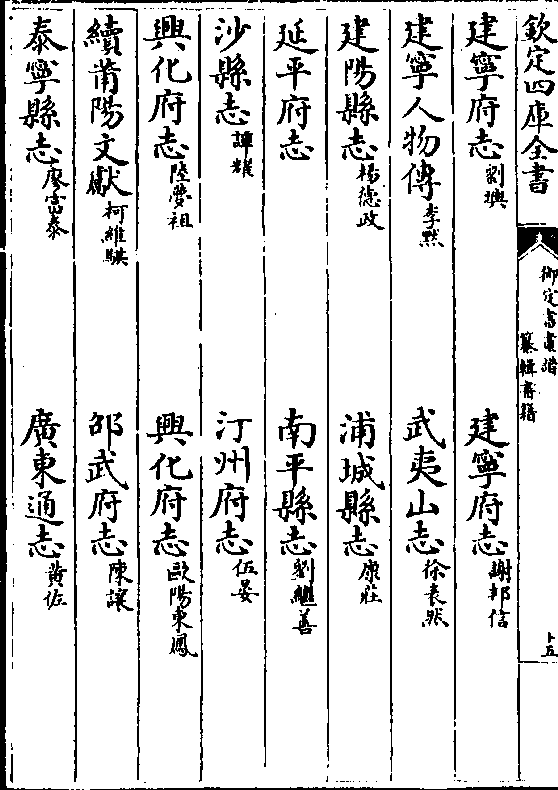 欽定四庫全書
御定書畫譜
纂輯書籍
十五
建寧府志 劉璵 建寧府志 謝邦信
建寧人物傳 李默 武夷山志 徐表然
建陽縣志 楊德政 浦城縣志 康莊
延平府志 南平縣志 劉繼善
沙縣志 譚耀 汀州府志 伍晏
興化府志 陸夢祖 興化府志 歐陽東鳳
續莆陽文獻 柯維騏 邵武府志 陳讓
泰寧縣志 廖富泰 廣東通志 黃佐